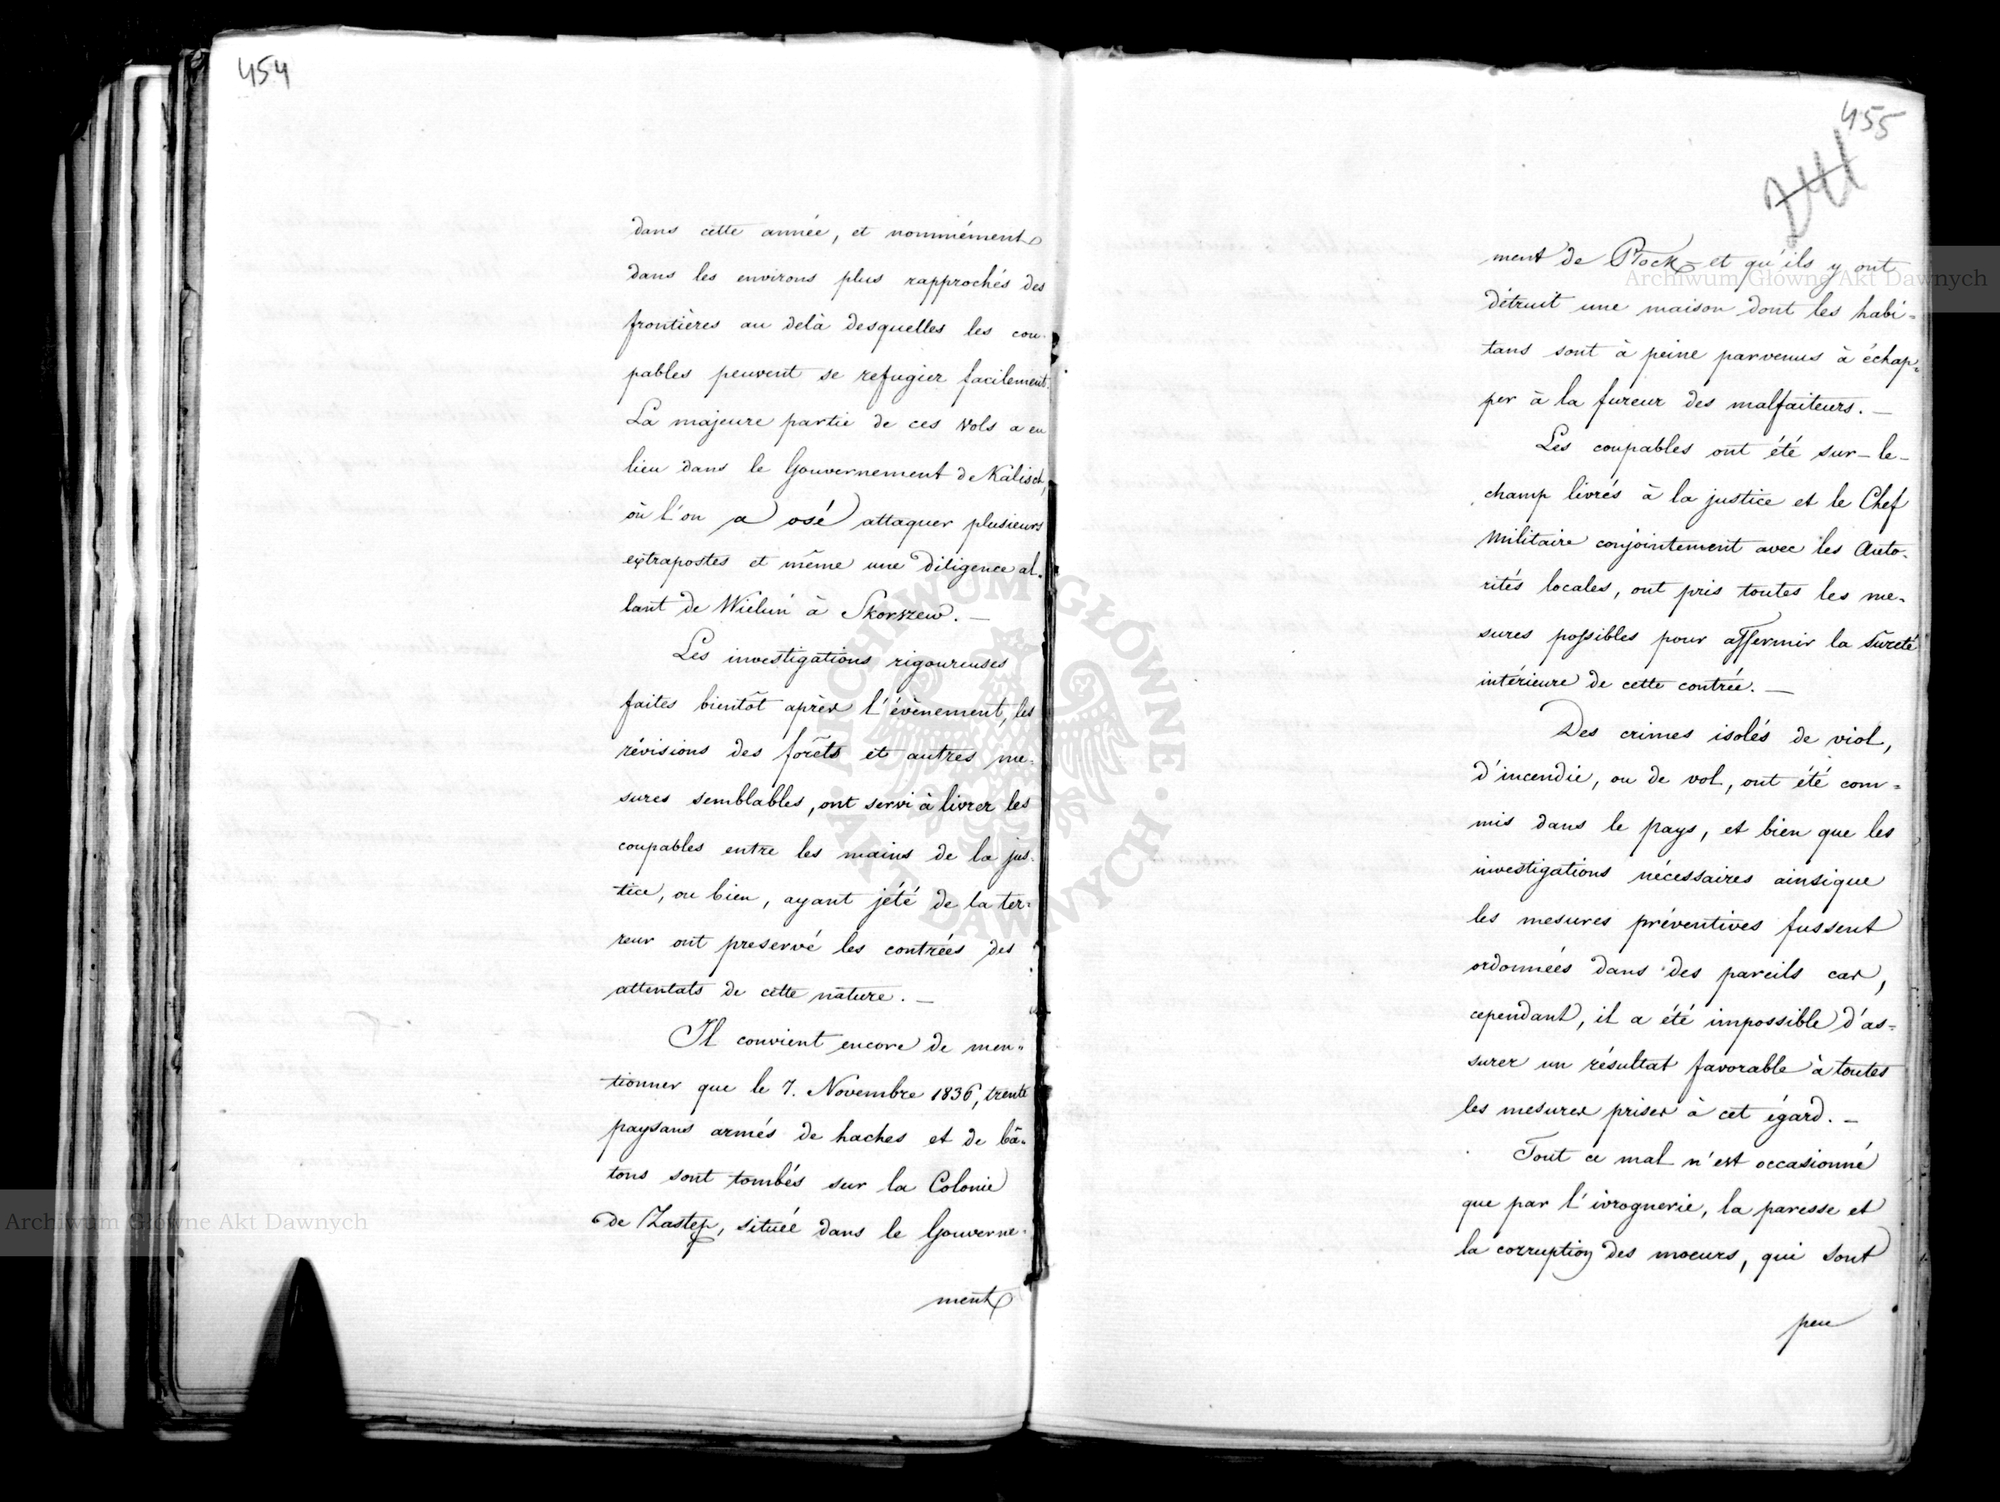 454
dans cette année, et nommément
dans les environs plus rapprochés des
frontières au delà desquelles les cou-
pables peuvent se refugier facilement.
La majeure partie de ces vols a eu
lieu dans le Gouvernement de Kalisch,
où l'on a osé attaquer plusieurs
extrapostes et même une diligence al-
lant de Wieluń à Skorszew. —
Les investigations rigoureuses
faites bientôt après l'évènement, les
révisions des forêts et autres me-
sures semblables, ont servi à livrer les
coupables entre les mains de la jus-
tice, ou bien, ayant jété de la ter-
reur ont preservé les contrées des
attentats de cette nature. —
Il convient encore de men-
tionner que le 7. Novembre 1836, trente
paysans armés de haches et de bâ-
tons sont tombés sur la Colonie
de Zastęp, située dans le Gouverne-
ment
455
241
ment de Płock et qu'ils y ont
détruit une maison dont les habi-
tans sont à peine parvenus à échap-
per à la fureur des malfaiteurs. —
Les coupables ont été sur-le-
champ livrés à la justice et le Chef
Militaire conjointement avec les Auto-
rités locales, ont pris toutes les me-
sures possibles pour affermir la sûreté
intérieure de cette contrée. —
Des crimes isolés de viol,
d'incendie, ou de vol, ont été com-
mis dans le pays, et bien que les
investigations nécessaires ainsique
les mesures préventives fussent
ordonnées dans des pareils cas,
cependant, il a été impossible d'as-
surer un résultat favorable à toutes
les mesures prises à cet égard. —
Tout ce mal n'est occasionné
que par l'ivrognerie, la paresse et
la corruption des moeurs, qui sont
peu
Archiwum Główne Akt Dawnych
Archiwum Główne Akt Dawnych
ARCHIWUM GŁÓWNE · AKT DAWNYCH ·